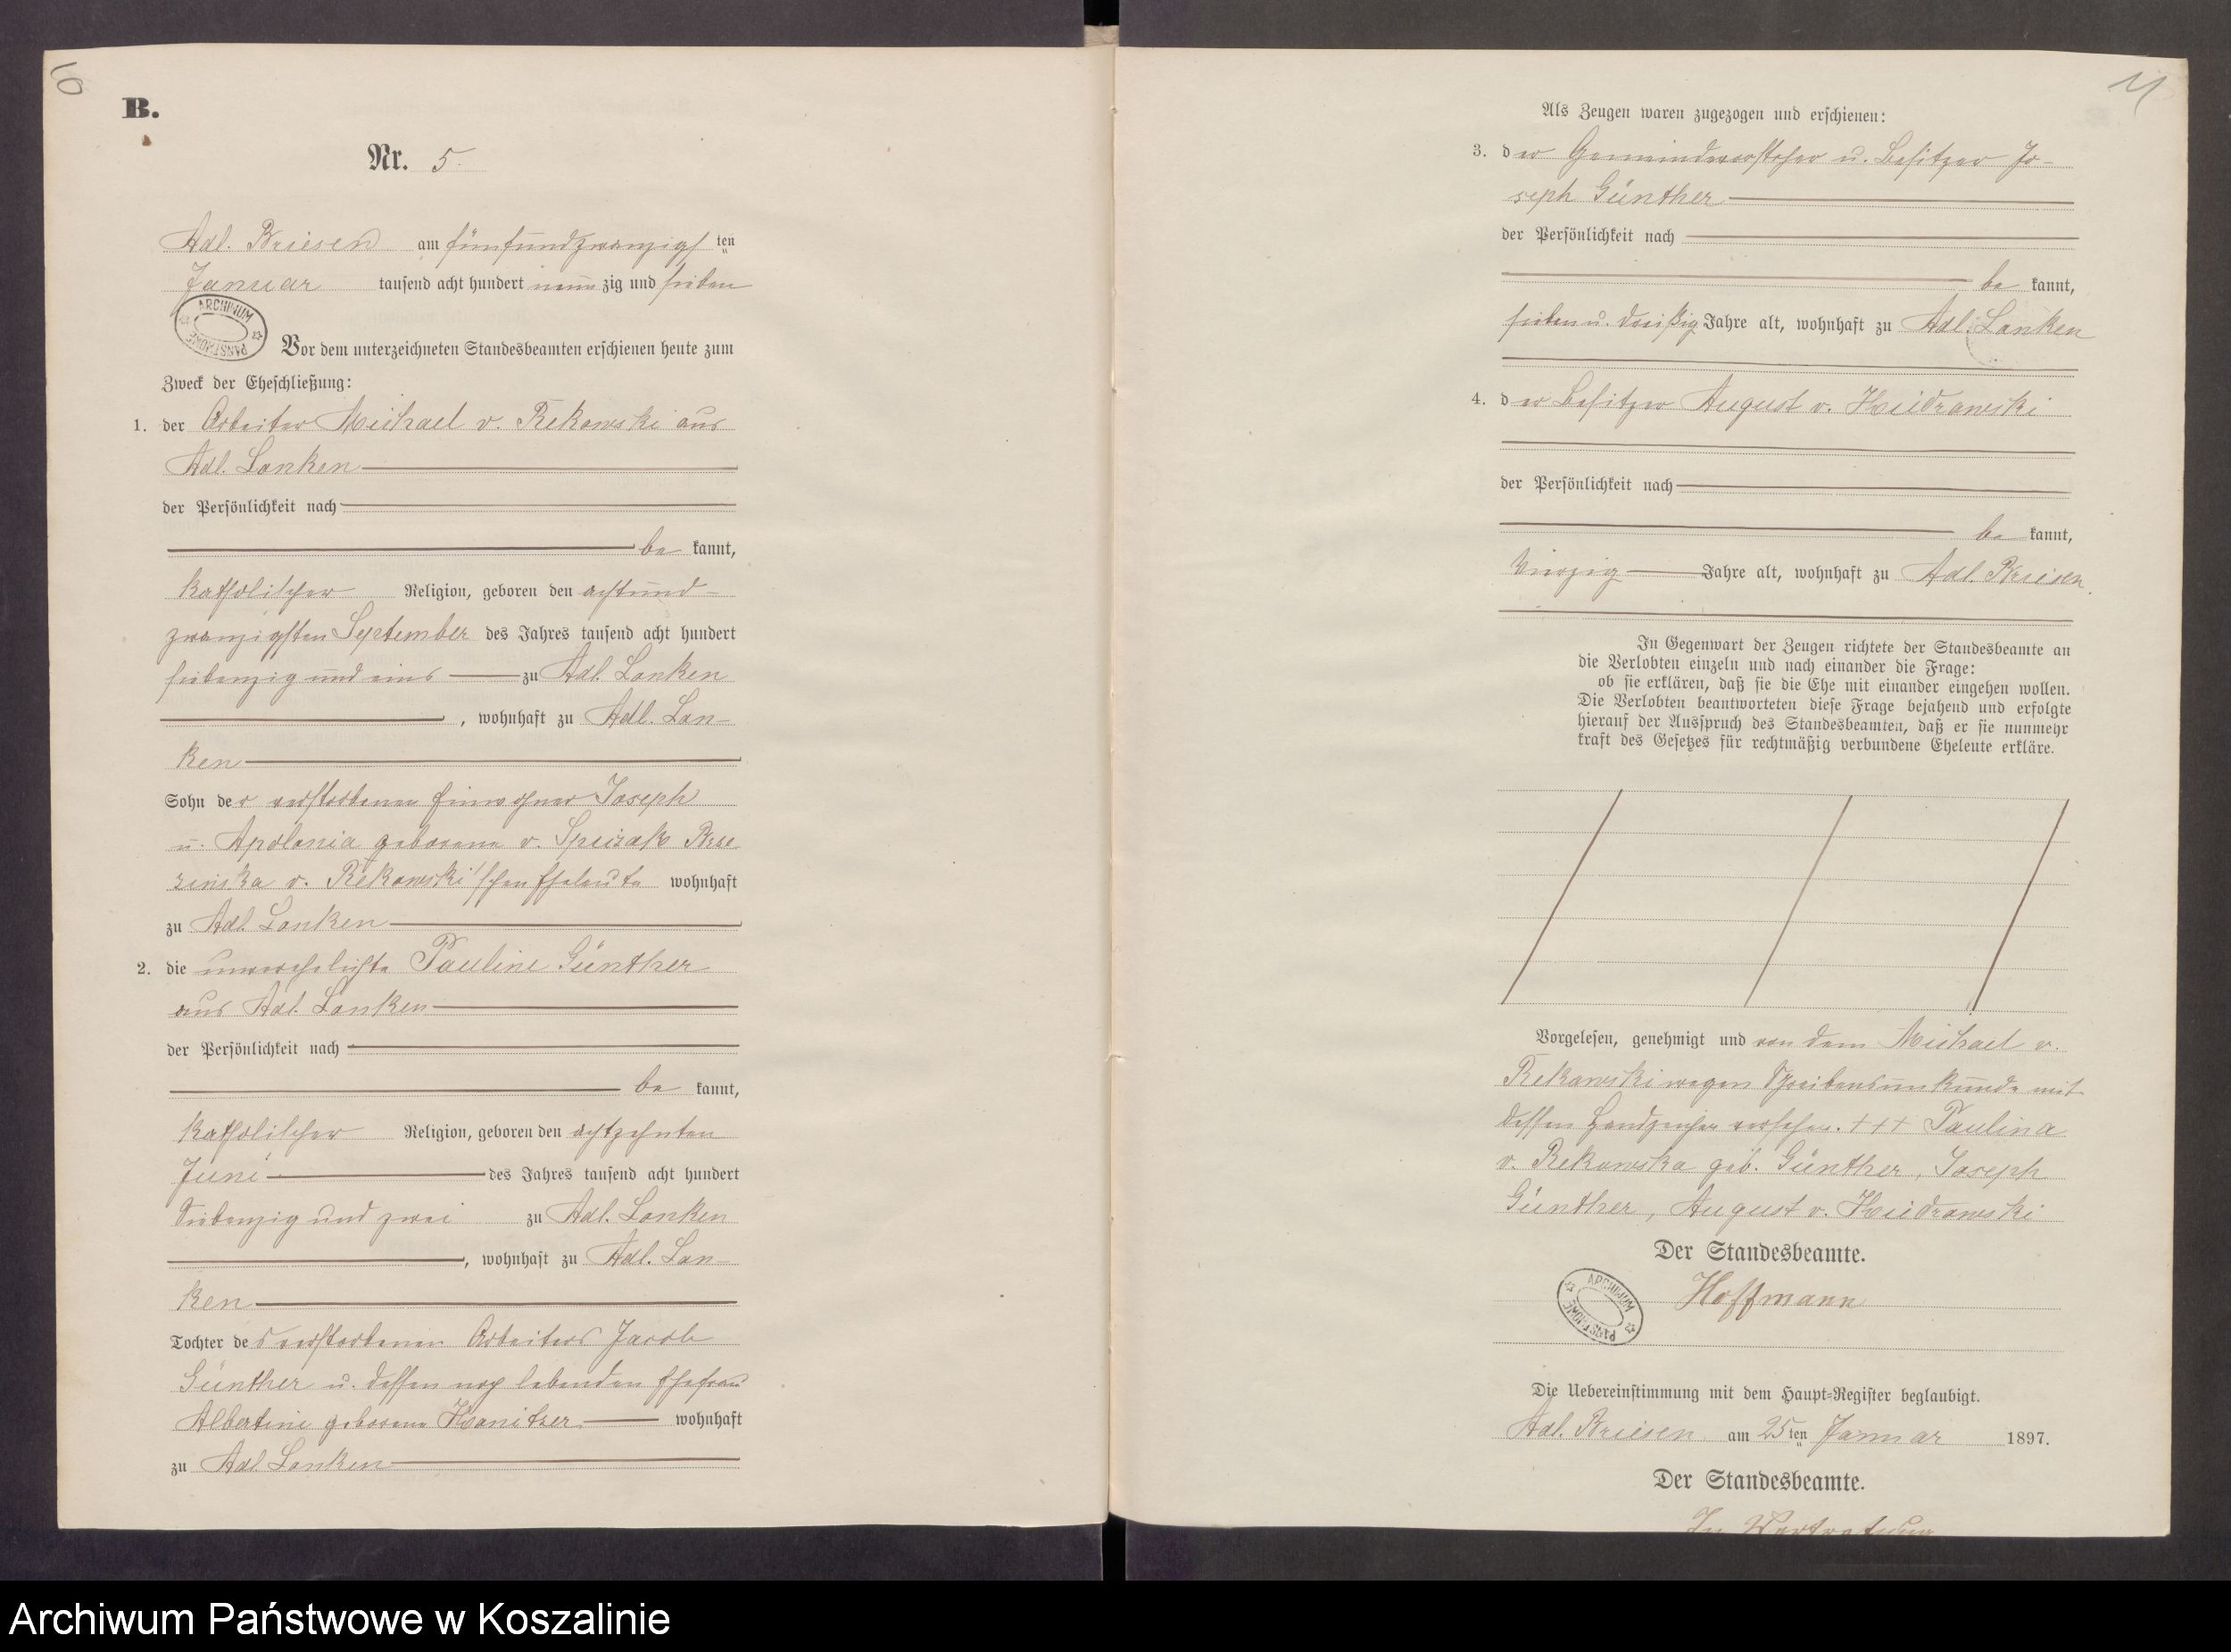 10
B.
Nr. 5.
Adl. Briesen am fünfundzwanzigsten
Januar tausend acht hundert neunzig und sieben
ARCHIWUM PAŃSTWOWE
Vor dem unterzeichneten Standesbeamten erschienen heute zum
Zweck der Eheschließung:
1. der Arbeiter Michael v. Rekowski aus
Adl. Lanken
der Persönlichkeit nach
be kannt,
katholischer Religion, geboren den achtund-
zwanzigsten September des Jahres tausend acht hundert
siebenzig und eins zu Adl. Lanken
, wohnhaft zu Adl. Lan-
ken
Sohn der verstorbenen Einwohner Joseph
u. Apolonia geborene v.
v. Rekowski'schen Eheleute wohnhaft
zu Adl. Lanken
2. die unverehelichte Pauline Günther
aus Adl. Lanken
der Persönlichkeit nach
be kannt,
katholischer Religion, geboren den achtzehnten
Juni des Jahres tausend acht hundert
siebenzig und zwei zu Adl. Lanken
, wohnhaft zu Adl. Lan-
ken
Tochter des verstorbenen Arbeiters Jacob
Günther u. dessen noch lebenden Ehefrau
Albertine geborene Kanitzer wohnhaft
zu Adl. Lanken
11
Als Zeugen waren zugezogen und erschienen:
3. der Gemeindevorsteher u. Besitzer Jo-
seph Günther
der Persönlichkeit nach
be kannt,
sieben u. dreißig Jahre alt, wohnhaft zu Adl. Lanken
4. der Besitzer August v.
der Persönlichkeit nach
be kannt,
vierzig Jahre alt, wohnhaft zu Adl. Briesen.
In Gegenwart der Zeugen richtete der Standesbeamte an
die Verlobten einzeln und nach einander die Frage:
ob sie erklären, daß sie die Ehe mit einander eingehen wollen.
Die Verlobten beantworteten diese Frage bejahend und erfolgte
hierauf der Ausspruch des Standesbeamten, daß er sie nunmehr
kraft des Gesetzes für rechtmäßig verbundene Eheleute erkläre.
Vorgelesen, genehmigt und von dem Michael v.
Rekowski wegen Schreibensunkunde mit
dessen Handzeichen versehen. +++ Paulina
v. Rekowska geb. Günther, Joseph
Günther, August v.
Der Standesbeamte.
Hoffmann
ARCHIWUM PAŃSTWOWE
Die Uebereinstimmung mit dem Haupt-Register beglaubigt.
Adl. Briesen am 25ten Januar 1897.
Der Standesbeamte.
In Vertretung
Archiwum Państwowe w Koszalinie